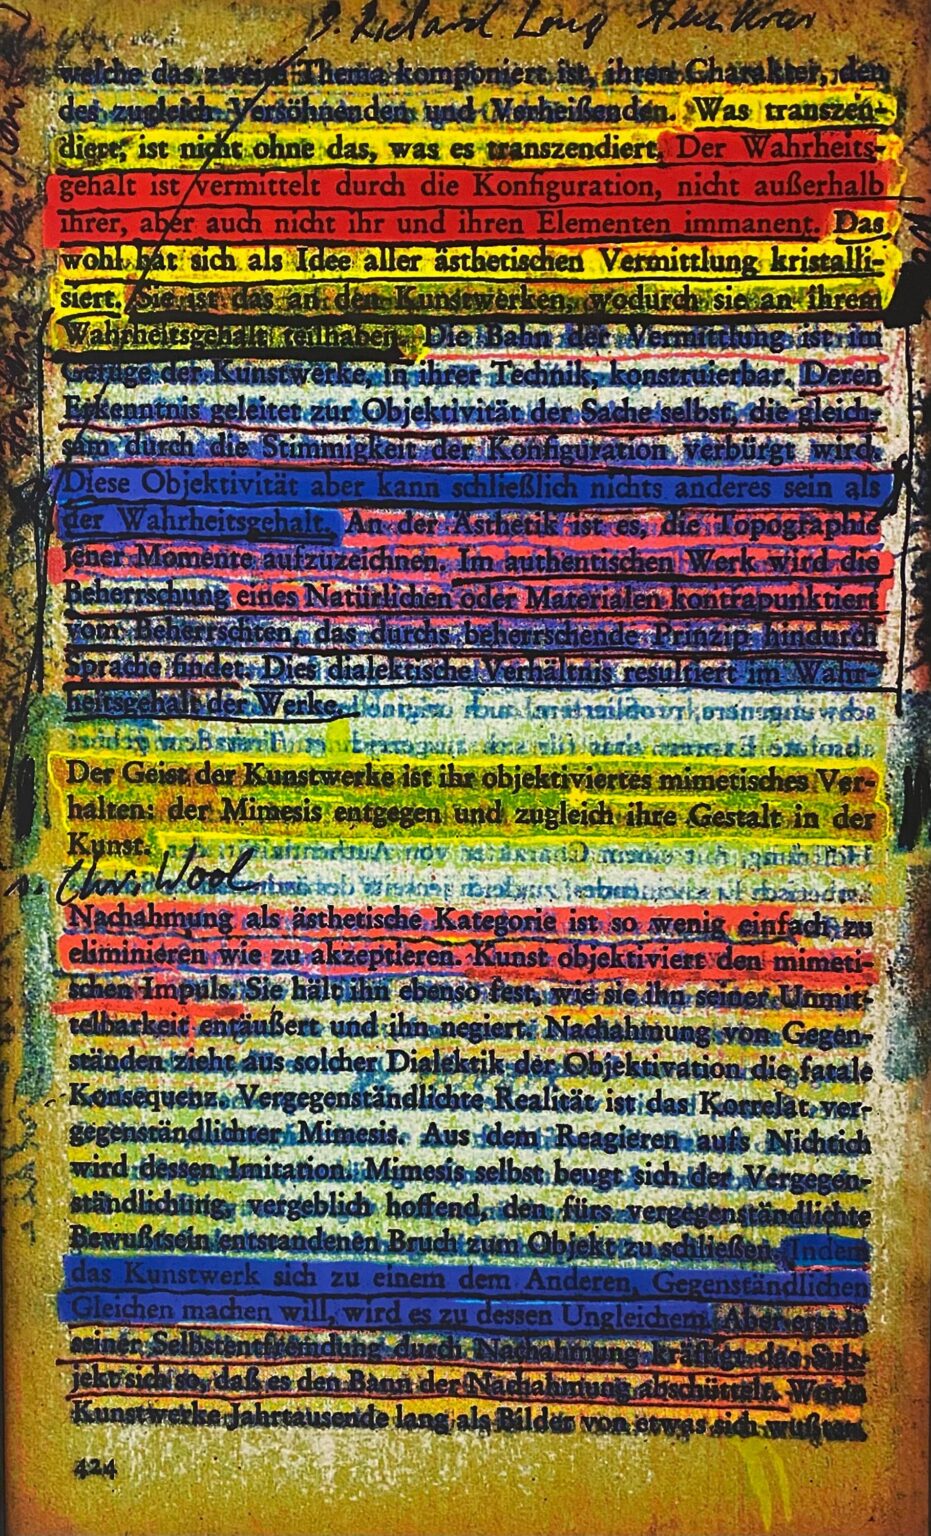 Richard Long
welche das zweite Thema komponiert ist, ihren Charakter, den
des zugleich Versöhnenden und Verheißenden. Was transzen-
diert, ist nicht ohne das, was es transzendiert. Der Wahrheits-
gehalt ist vermittelt durch die Konfiguration, nicht außerhalb
ihrer, aber auch nicht ihr und ihren Elementen immanent. Das
wohl hat sich als Idee aller ästhetischen Vermittlung kristalli-
siert. Sie ist das an den Kunstwerken, wodurch sie an ihrem
Wahrheitsgehalt teilhaben. Die Bahn der Vermittlung ist im
Gefüge der Kunstwerke, in ihrer Technik, konstruierbar. Deren
Erkenntnis geleitet zur Objektivität der Sache selbst, die gleich-
sam durch die Stimmigkeit der Konfiguration verbürgt wird.
Diese Objektivität aber kann schließlich nichts anderes sein als
der Wahrheitsgehalt. An der Ästhetik ist es, die Topographie
jener Momente aufzuzeichnen. Im authentischen Werk wird die
Beherrschung eines Natürlichen oder Materialen kontrapunktiert
vom Beherrschten, das durchs beherrschende Prinzip hindurch
Sprache findet. Dies dialektische Verhältnis resultiert im Wahr-
heitsgehalt der Werke.
Der Geist der Kunstwerke ist ihr objektiviertes mimetisches Ver-
halten: der Mimesis entgegen und zugleich ihre Gestalt in der
Kunst.
Chris Wool
Nachahmung als ästhetische Kategorie ist so wenig einfach zu
eliminieren wie zu akzeptieren. Kunst objektiviert den mimeti-
schen Impuls. Sie hält ihn ebenso fest, wie sie ihn seiner Unmit-
telbarkeit entäußert und ihn negiert. Nachahmung von Gegen-
ständen zieht aus solcher Dialektik der Objektivation die fatale
Konsequenz. Vergegenständlichte Realität ist das Korrelat ver-
gegenständlichter Mimesis. Aus dem Reagieren aufs Nichtich
wird dessen Imitation. Mimesis selbst beugt sich der Vergegen-
ständlichung, vergeblich hoffend, den fürs vergegenständlichte
Bewußtsein entstandenen Bruch zum Objekt zu schließen. Indem
das Kunstwerk sich zu einem dem Anderen, Gegenständlichen
Gleichen machen will, wird es zu dessen Ungleichem. Aber erst in
seiner Selbstentfremdung durch Nachahmung kräftigt das Sub-
jekt sich so, daß es den Bann der Nachahmung abschüttelt. Worin
Kunstwerke Jahrtausende lang als Bilder von etwas sich wußten,
424